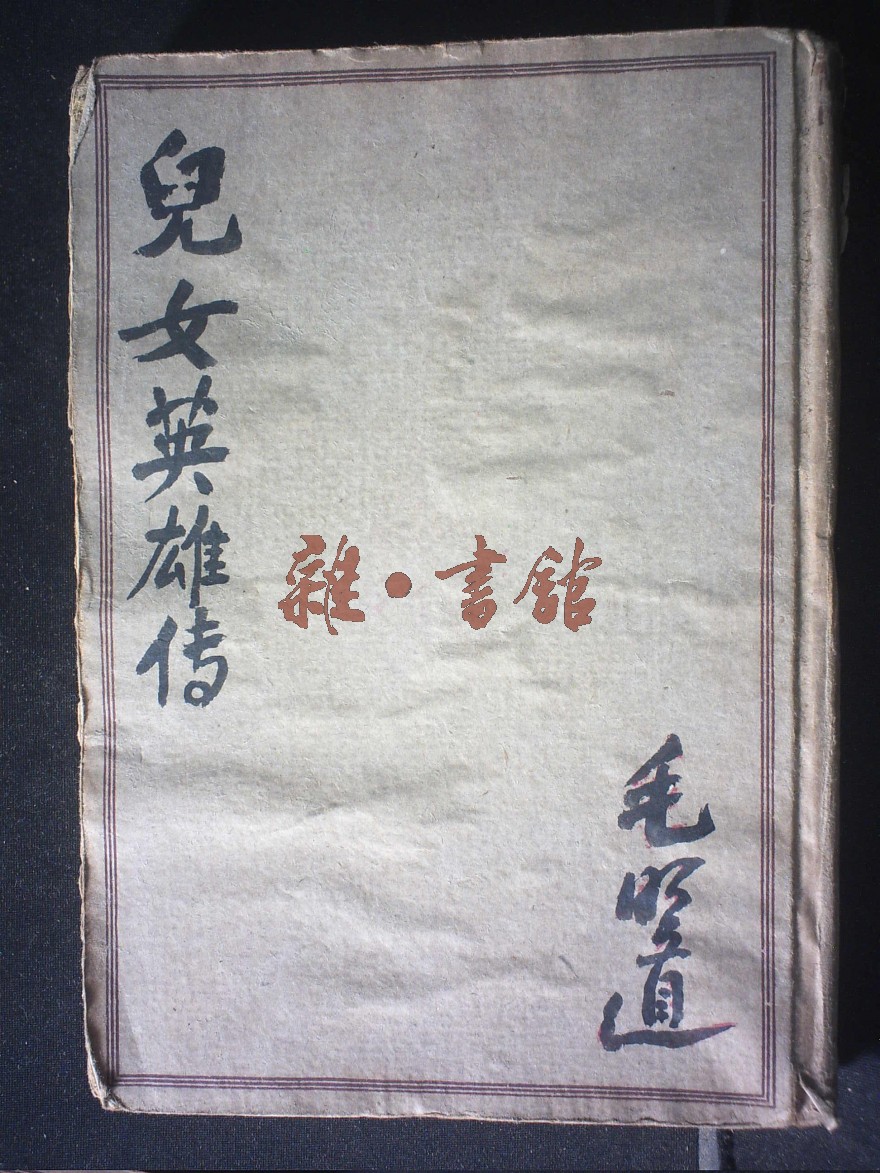 兒女英雄传
雜·書館
毛明道